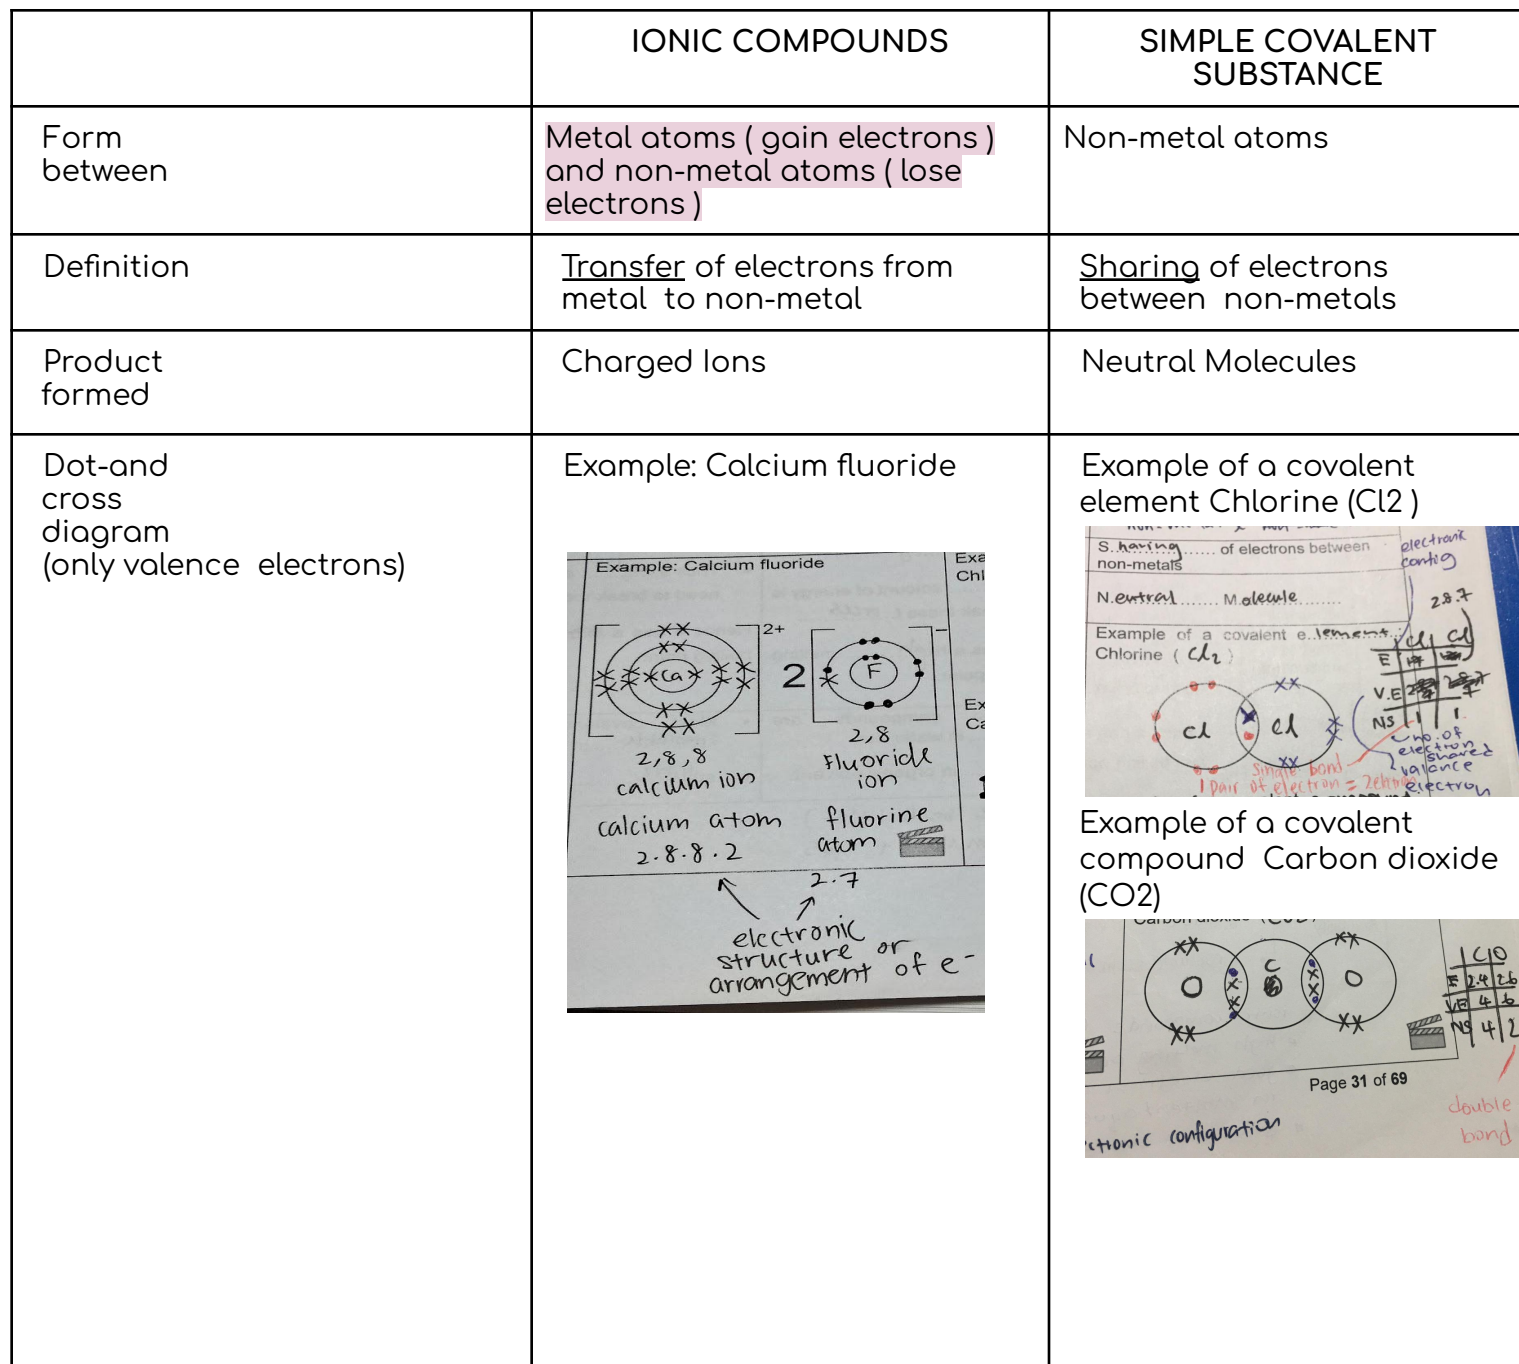 IONIC COMPOUNDS
SIMPLE COVALENT
SUBSTANCE
Form
between
Metal atoms ( gain electrons )
and non-metal atoms ( lose
electrons )
Non-metal atoms
Definition
Transfer of electrons from
metal to non-metal
Sharing of electrons
between non-metals
Product
formed
Charged Ions
Neutral Molecules
Dot-and
cross
diagram
(only valence electrons)
Example: Calcium fluoride
Example: Calcium fluoride
Exa
Chl
2+
Ca
2
F
−
Ex
Ca
2,8,8
calcium ion
2,8
Fluoride
ion
calcium atom
2.8.8.2
fluorine
atom
2.7
electronic
structure or
arrangement of e-
Example of a covalent
element Chlorine (Cl2 )
S..haring...... of electrons between
non-metals
electronic
config
N.eutral....... Molecule.......
2.8.7
Example of a covalent e..lement..:
Chlorine ( Cl2 )
Cl Cl
E
V.E
NS 1 1
Cl Cl
no. of
electron
shared
valance
electron
single bond
1 pair of electron =
Example of a covalent
compound Carbon dioxide
(CO2)
Carbon dioxide (CO2)
O C O
C O
E 2.4 2.6
VE 4 6
NS 4 2
Page 31 of 69
double
bond
ctronic configuration